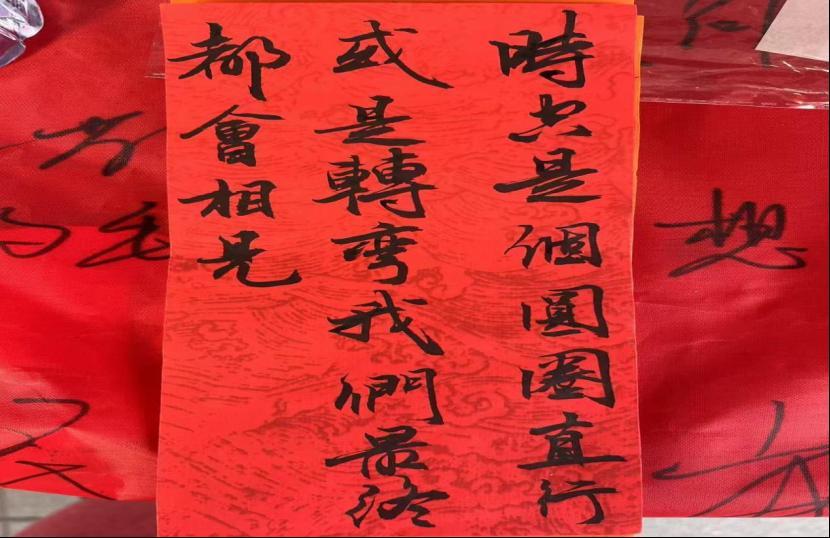 時空是個圓圈直行
或是轉彎我們最終
都會相見
想